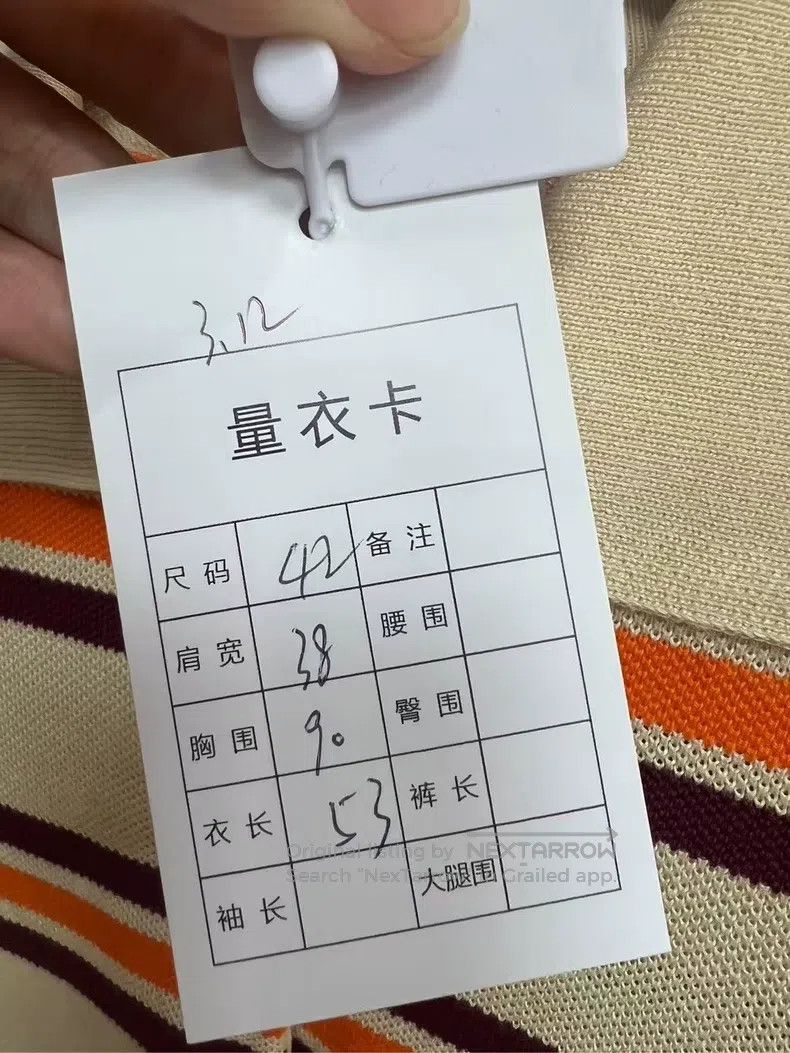 3.12
量衣卡
尺码 42 备注
肩宽 38 腰围
胸围 90 臀围
衣长 53 裤长
袖长 大腿围
Original listing by NEXTARROW
Search "NexTarrow" Grailed app.